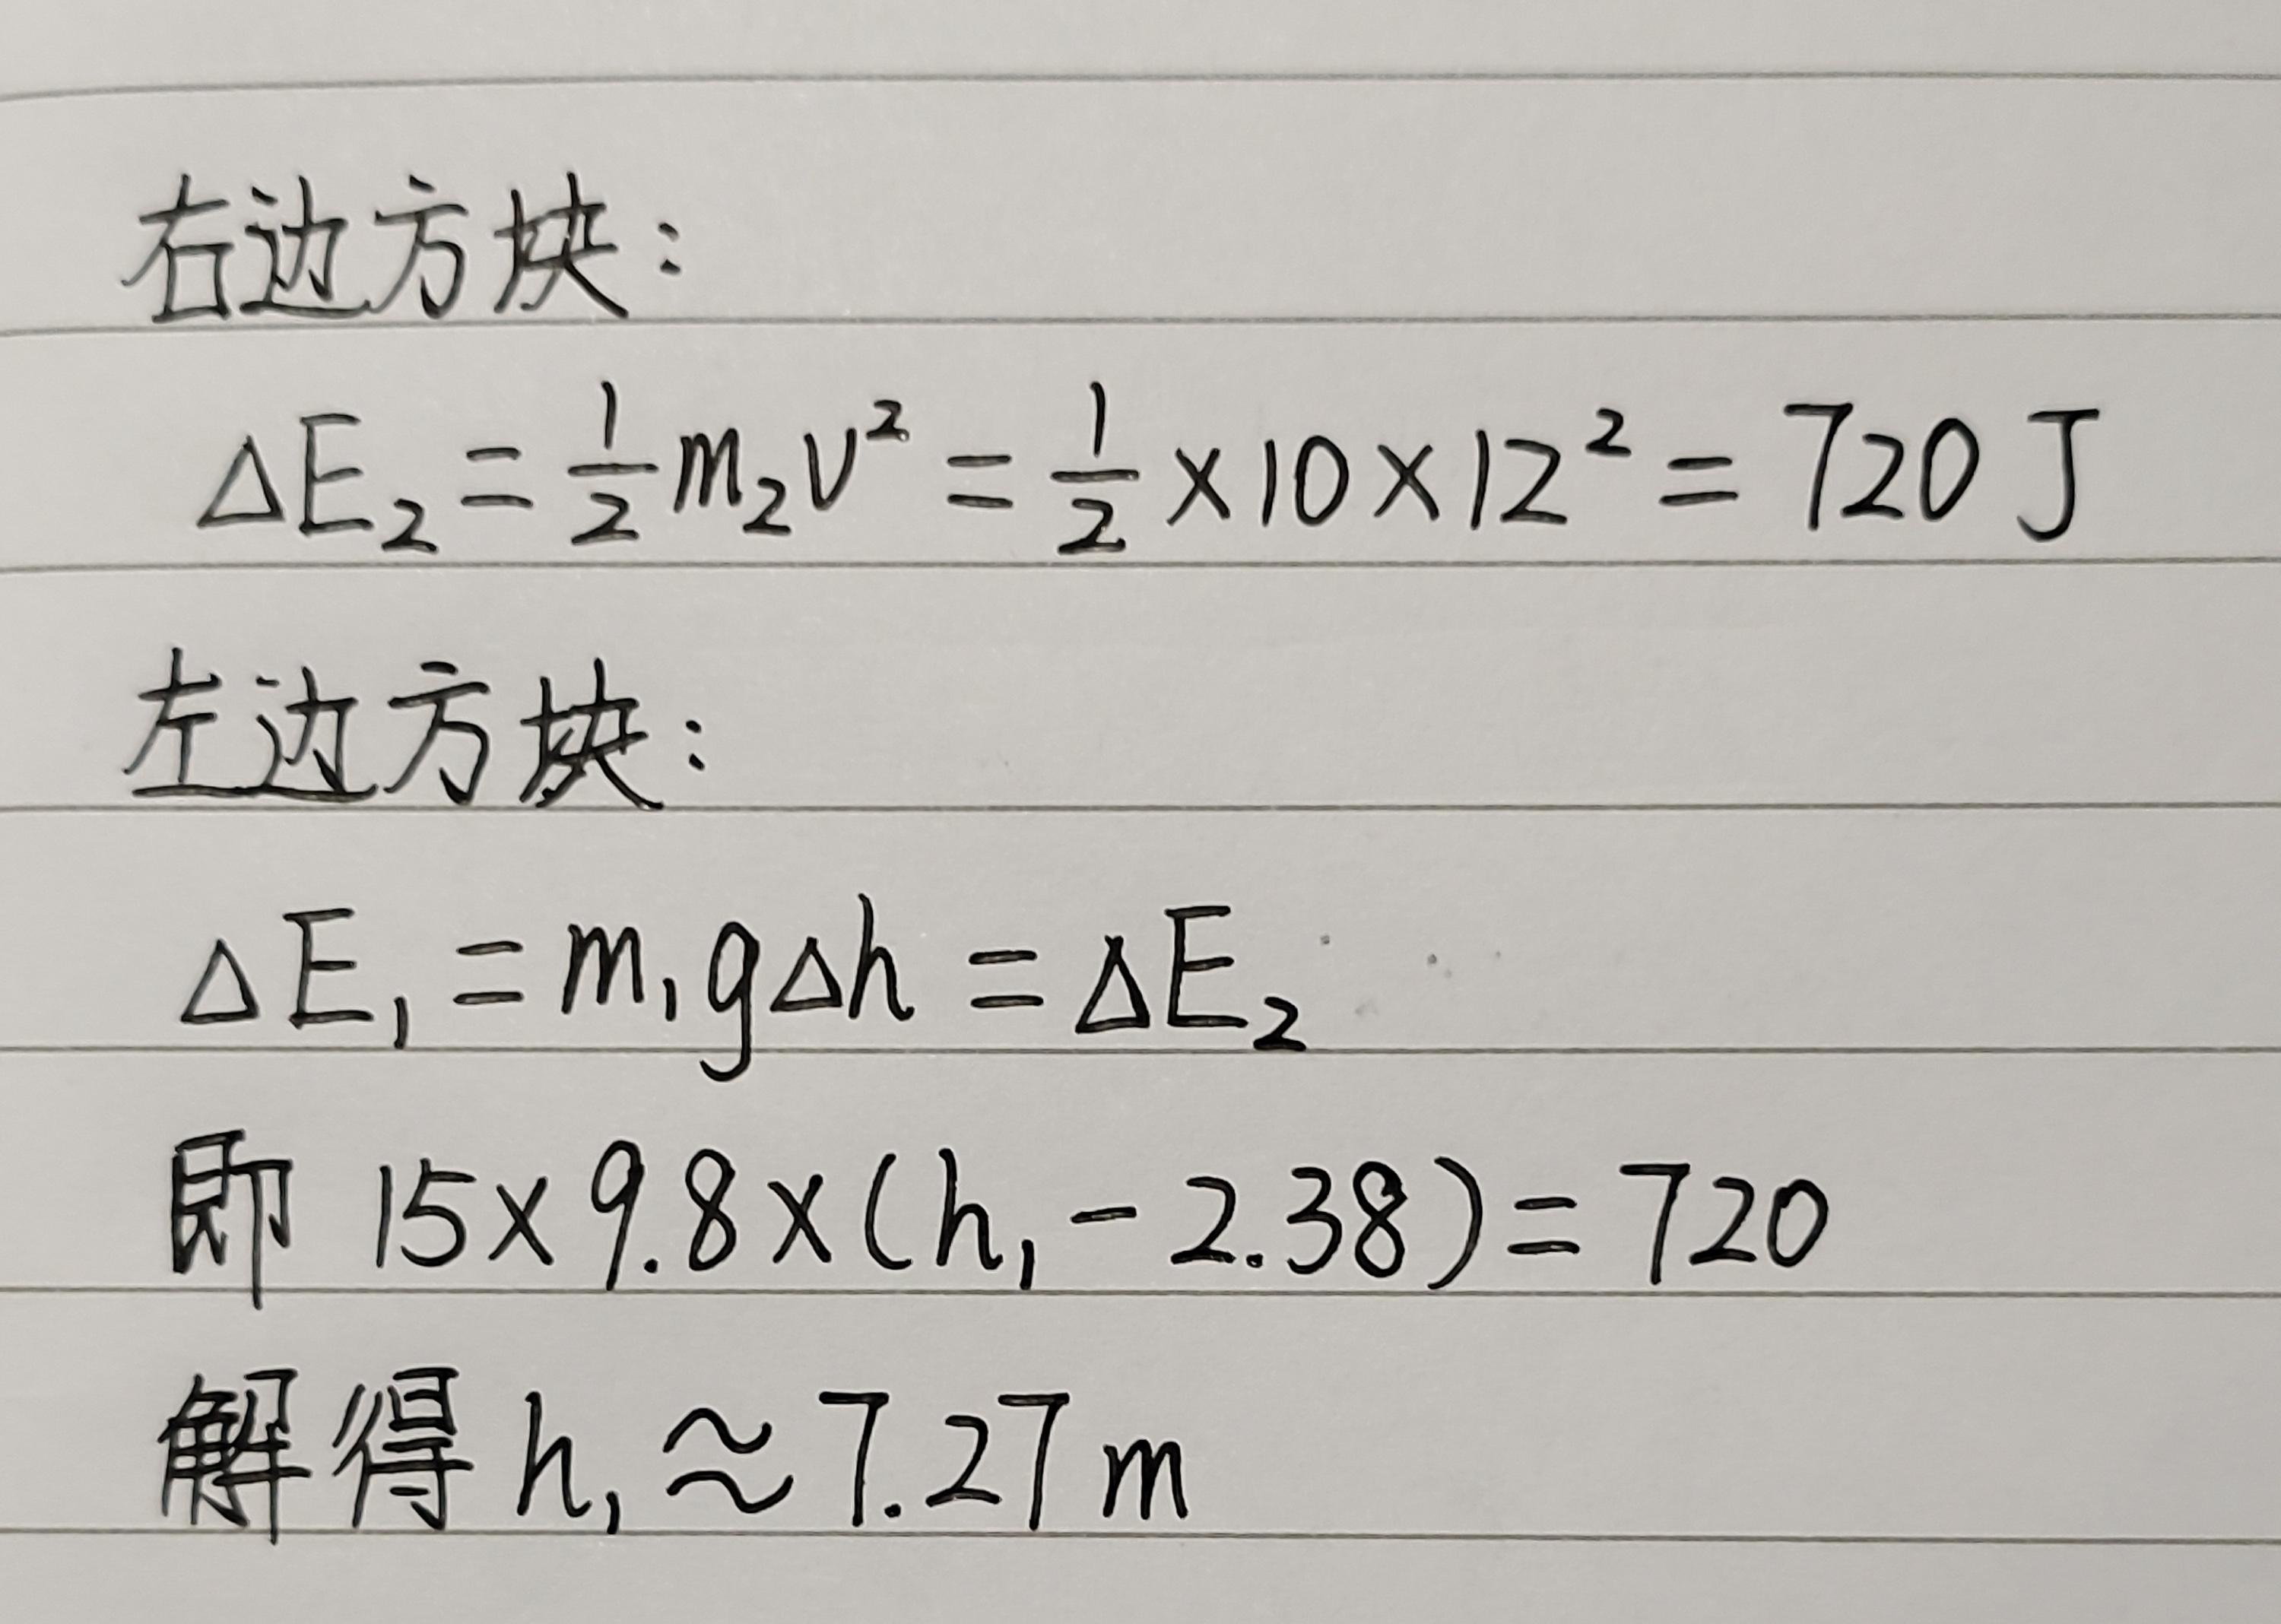 右边方块:
ΔE₂ = 1/2 m₂v² = 1/2 × 10 × 12² = 720 J
左边方块:
ΔE₁ = m₁gΔh = ΔE₂
即 15 × 9.8 × (h₁ - 2.38) = 720
解得 h₁ ≈ 7.27 m